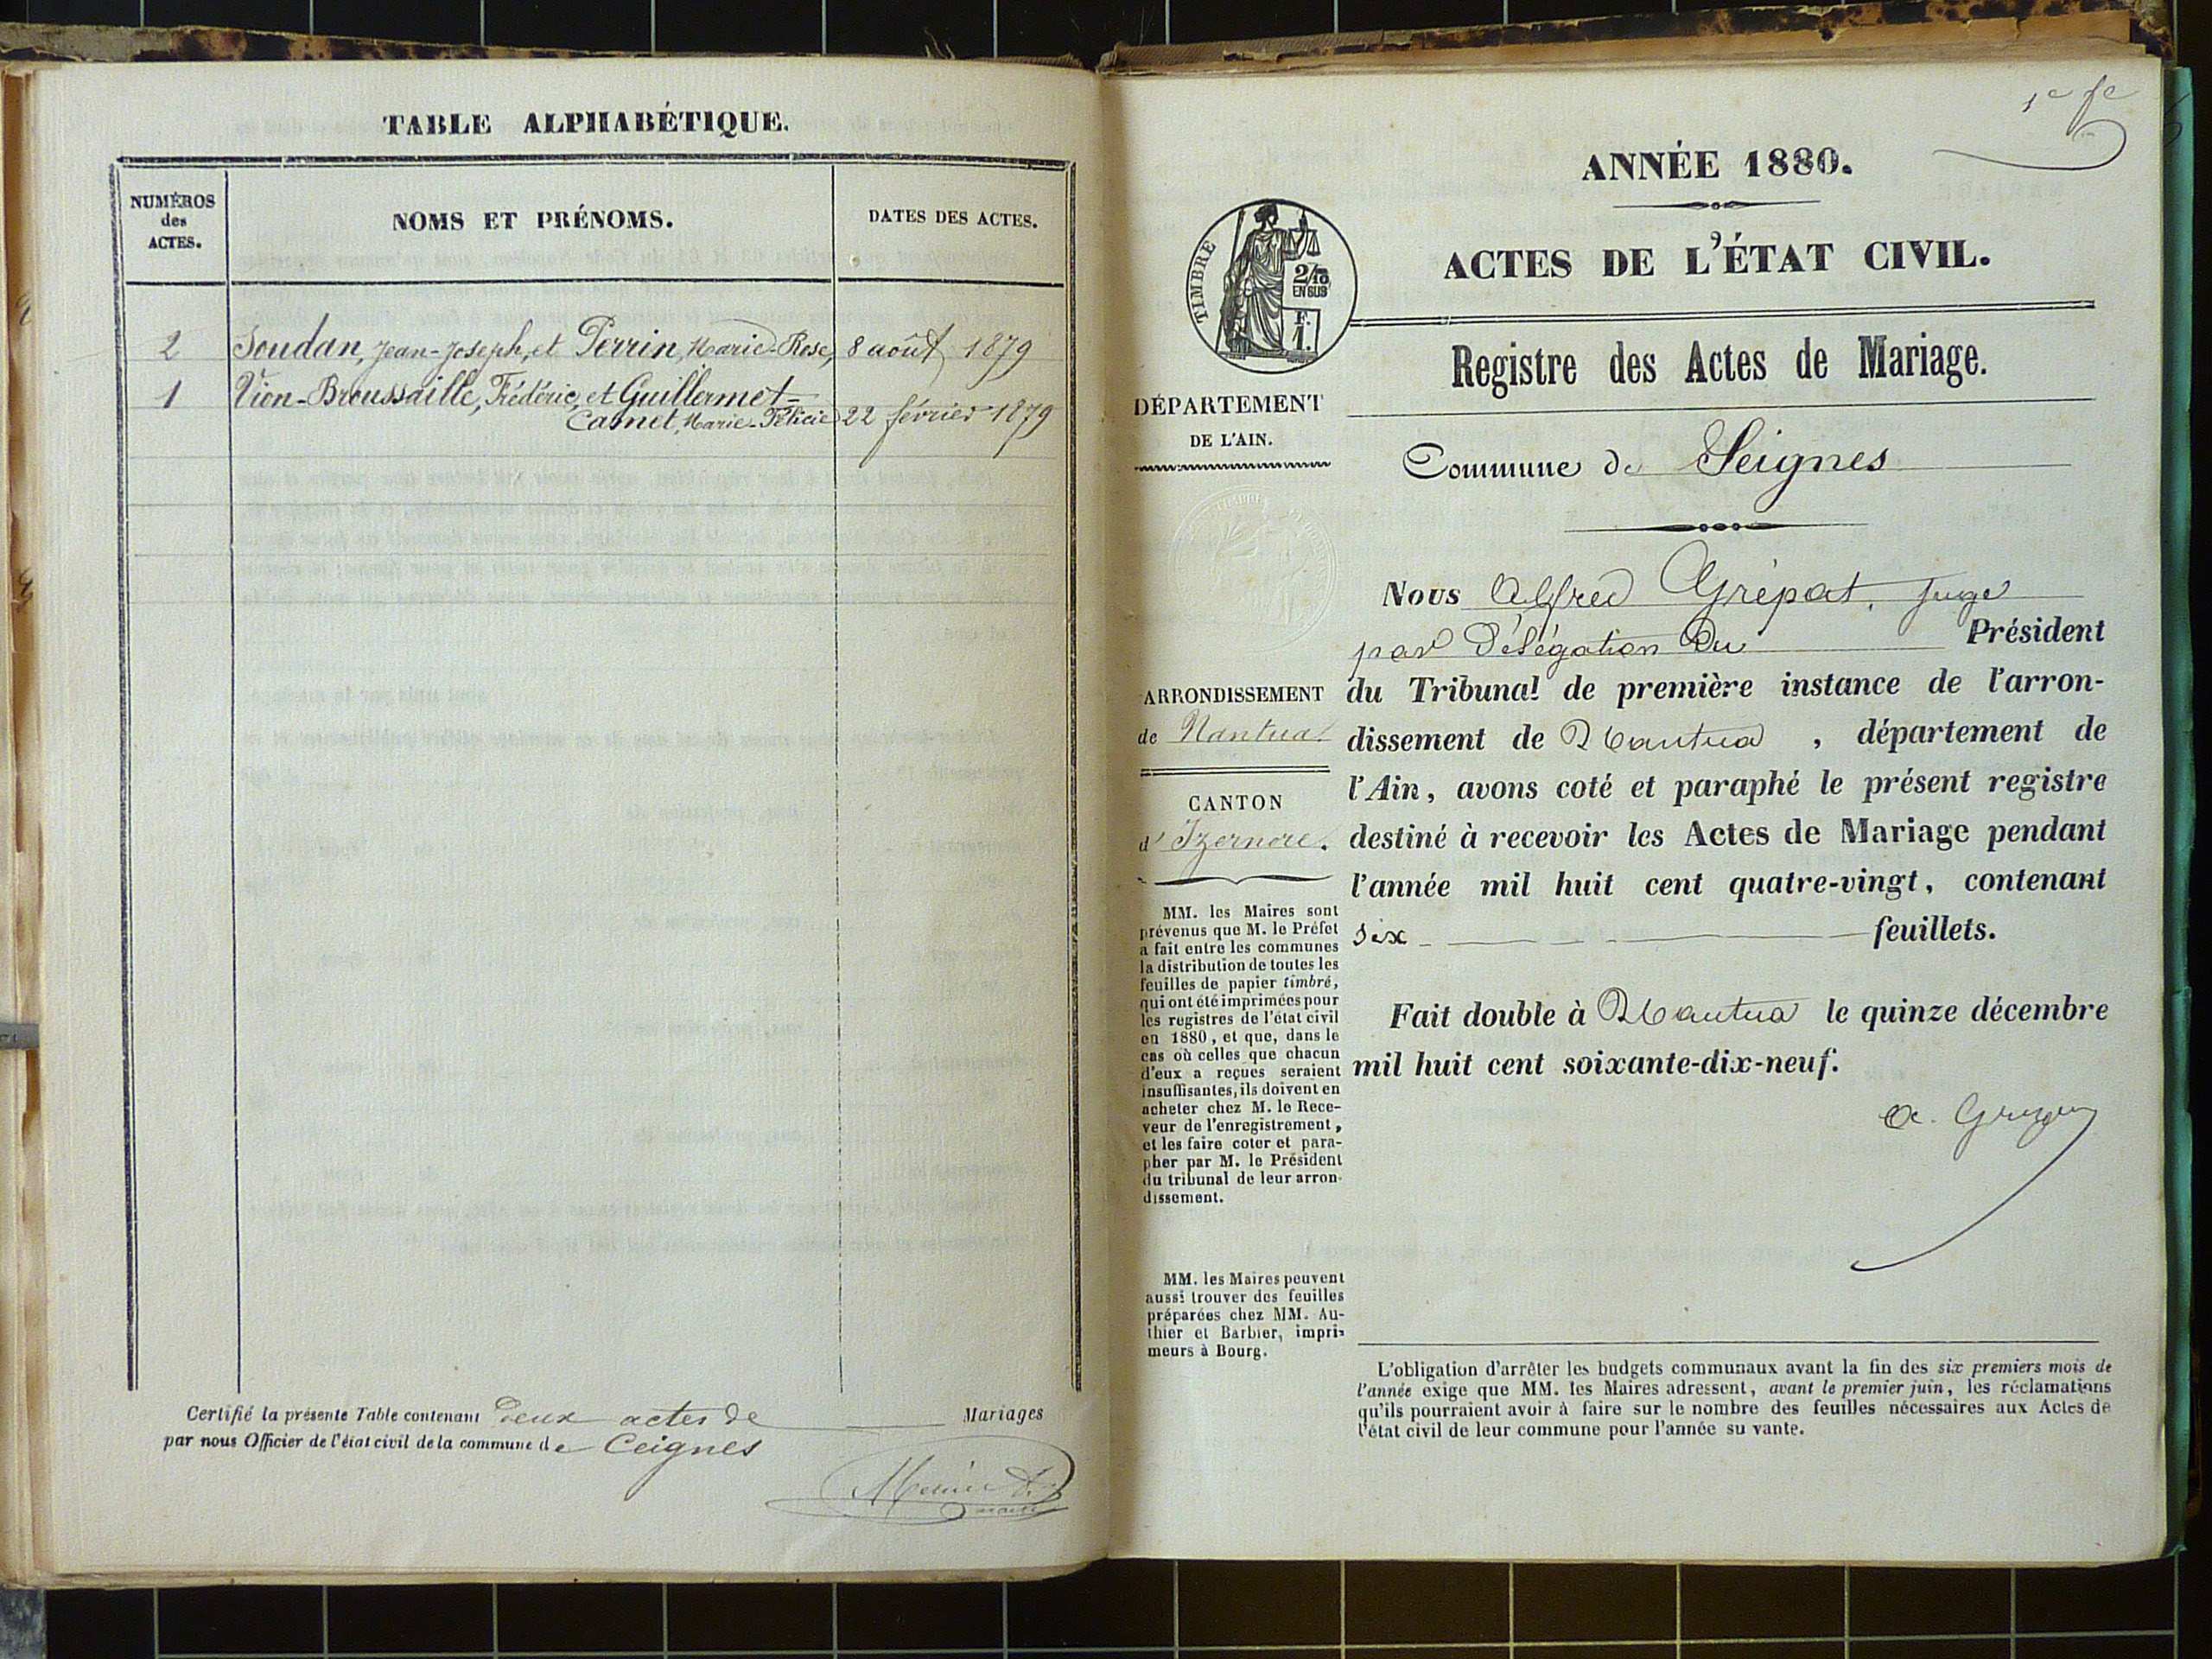 TABLE ALPHABÉTIQUE.
NUMÉROS
des
ACTES.
NOMS ET PRÉNOMS.
DATES DES ACTES.
2 Soudan, Jean-Joseph, et Perrin, Marie-Rose, 8 août 1879
1 Vion-Broussaille, Frédéric, et Guillermet-
Camet, Marie-Félicie 22 février 1879
Certifié la présente Table contenant deux actes de Mariages
par nous Officier de l'état civil de la commune de Ceignes
maire
1e fe
ANNÉE 1880.
TIMBRE
2/10
EN SUS
F.
1.
ACTES DE L'ÉTAT CIVIL.
Registre des Actes de Mariage.
DÉPARTEMENT
DE L'AIN.
Commune de Seignes
Nous Alfred Grépat, juge
par Délégation du Président
ARRONDISSEMENT
de Nantua
du Tribunal de première instance de l'arron-
dissement de Nantua, département de
l'Ain, avons coté et paraphé le présent registre
destiné à recevoir les Actes de Mariage pendant
l'année mil huit cent quatre-vingt, contenant
six feuillets.
CANTON
d'Izernore.
MM. les Maires sont
prévenus que M. le Préfet
a fait entre les communes
la distribution de toutes les
feuilles de papier timbré,
qui ont été imprimées pour
les registres de l'état civil
en 1880, et que, dans le
cas où celles que chacun
d'eux a reçues seraient
insuffisantes, ils doivent en
acheter chez M. le Rece-
veur de l'enregistrement,
et les faire coter et para-
pher par M. le Président
du tribunal de leur arron-
dissement.
Fait double à Nantua le quinze décembre
mil huit cent soixante-dix-neuf.
MM. les Maires peuvent
aussi trouver des feuilles
préparées chez MM. Au-
thier et Barbier, impri-
meurs à Bourg.
L'obligation d'arrêter les budgets communaux avant la fin des six premiers mois de
l'année exige que MM. les Maires adressent, avant le premier juin, les réclamations
qu'ils pourraient avoir à faire sur le nombre des feuilles nécessaires aux Actes de
l'état civil de leur commune pour l'année su vante.